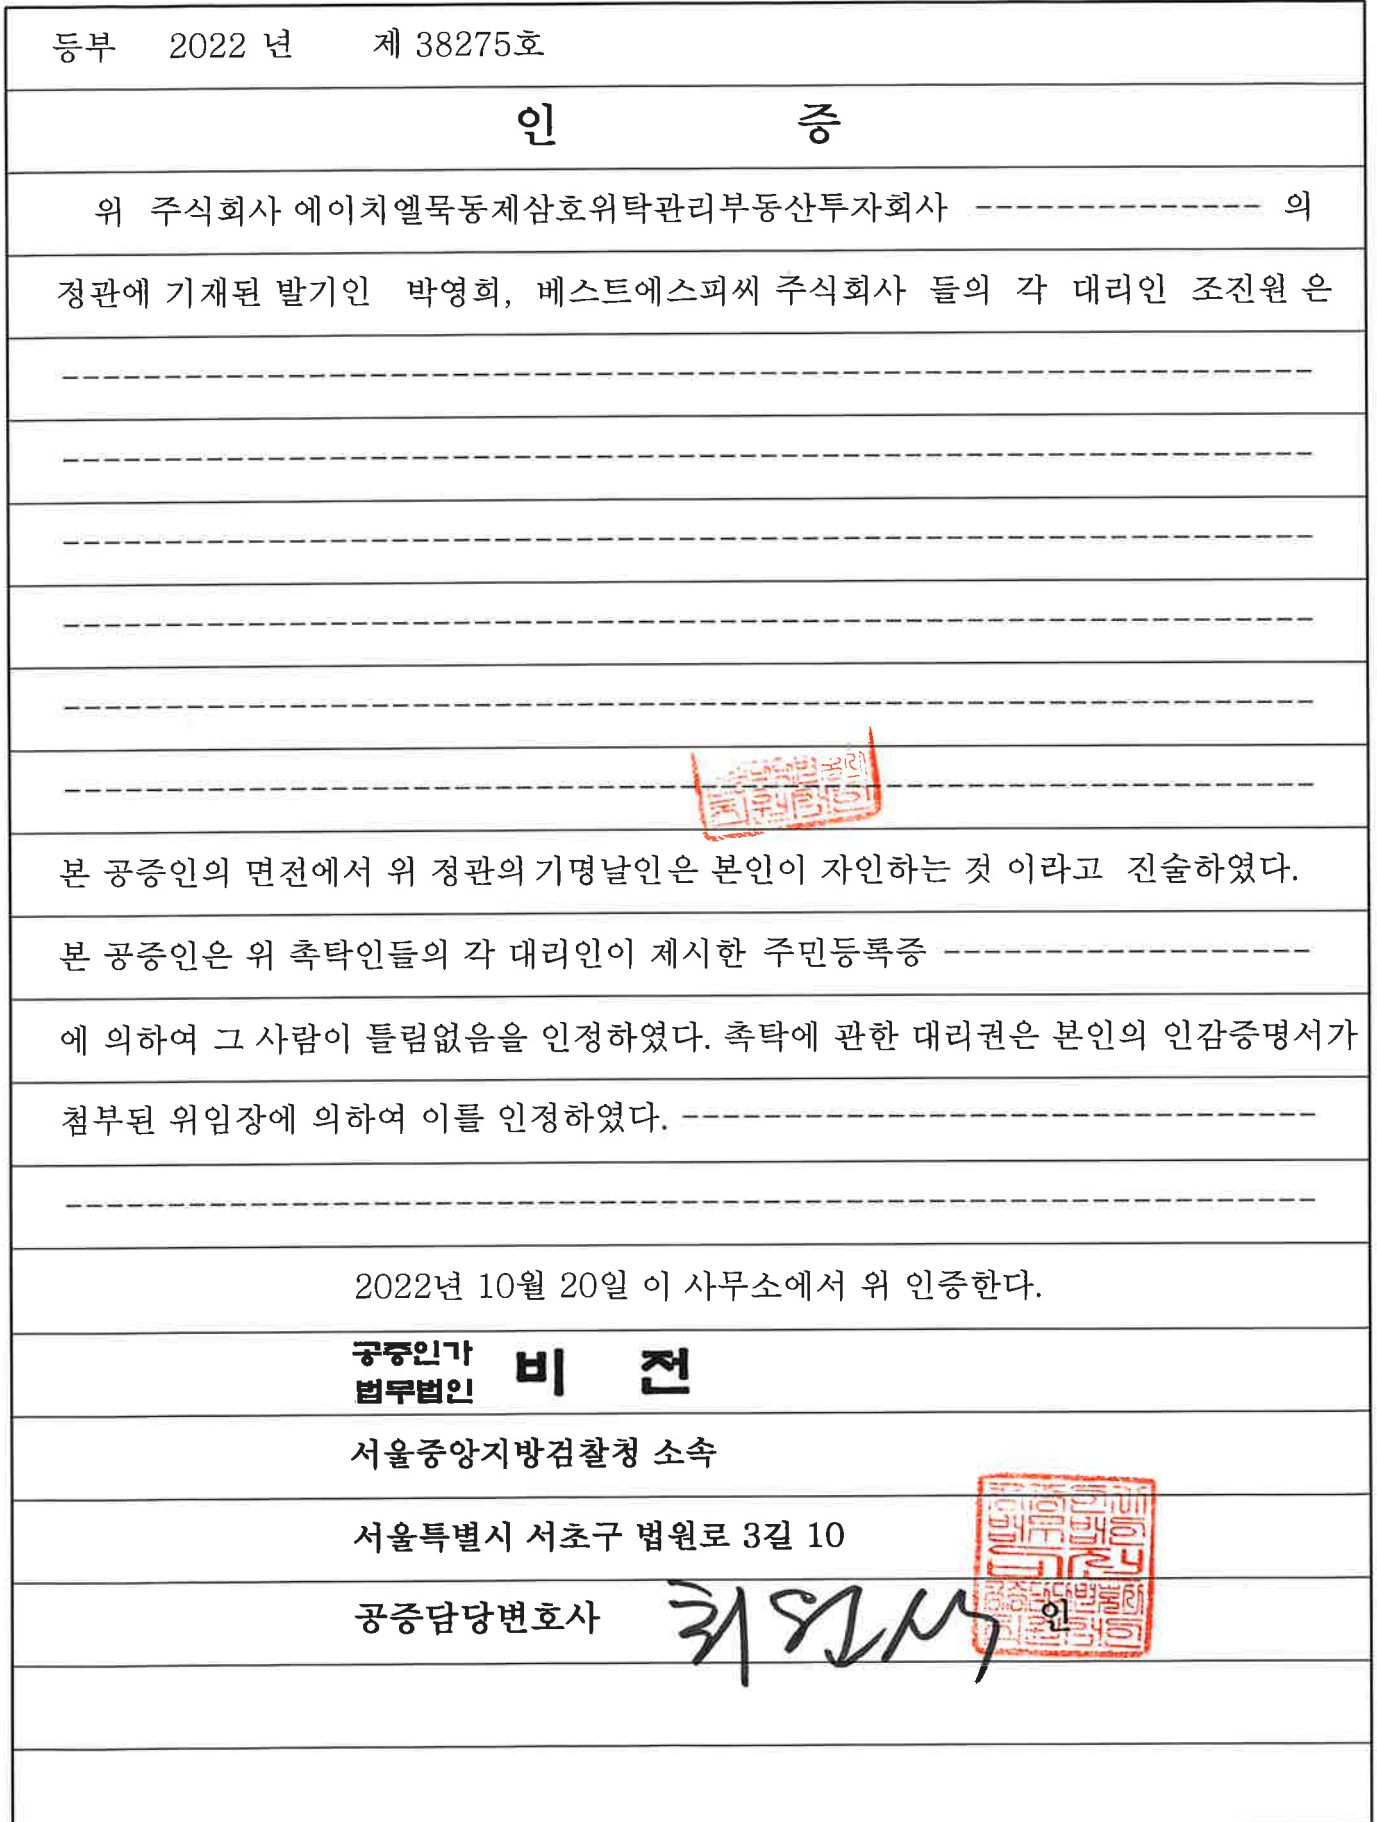 등부 2022 년 제 38275호
인 증
위 주식회사 에이치엘묵동제삼호위탁관리부동산투자회사 -------------- 의
정관에 기재된 발기인 박영희, 베스트에스피씨 주식회사 들의 각 대리인 조진원 은
본 공증인의 면전에서 위 정관의 기명날인은 본인이 자인하는 것 이라고 진술하였다.
본 공증인은 위 촉탁인들의 각 대리인이 제시한 주민등록증 ------------------
에 의하여 그 사람이 틀림없음을 인정하였다. 촉탁에 관한 대리권은 본인의 인감증명서가
첨부된 위임장에 의하여 이를 인정하였다. -------------------------------
2022년 10월 20일 이 사무소에서 위 인증한다.
공증인가
법무법인 비 전
서울중앙지방검찰청 소속
서울특별시 서초구 법원로 3길 10
공증담당변호사 인